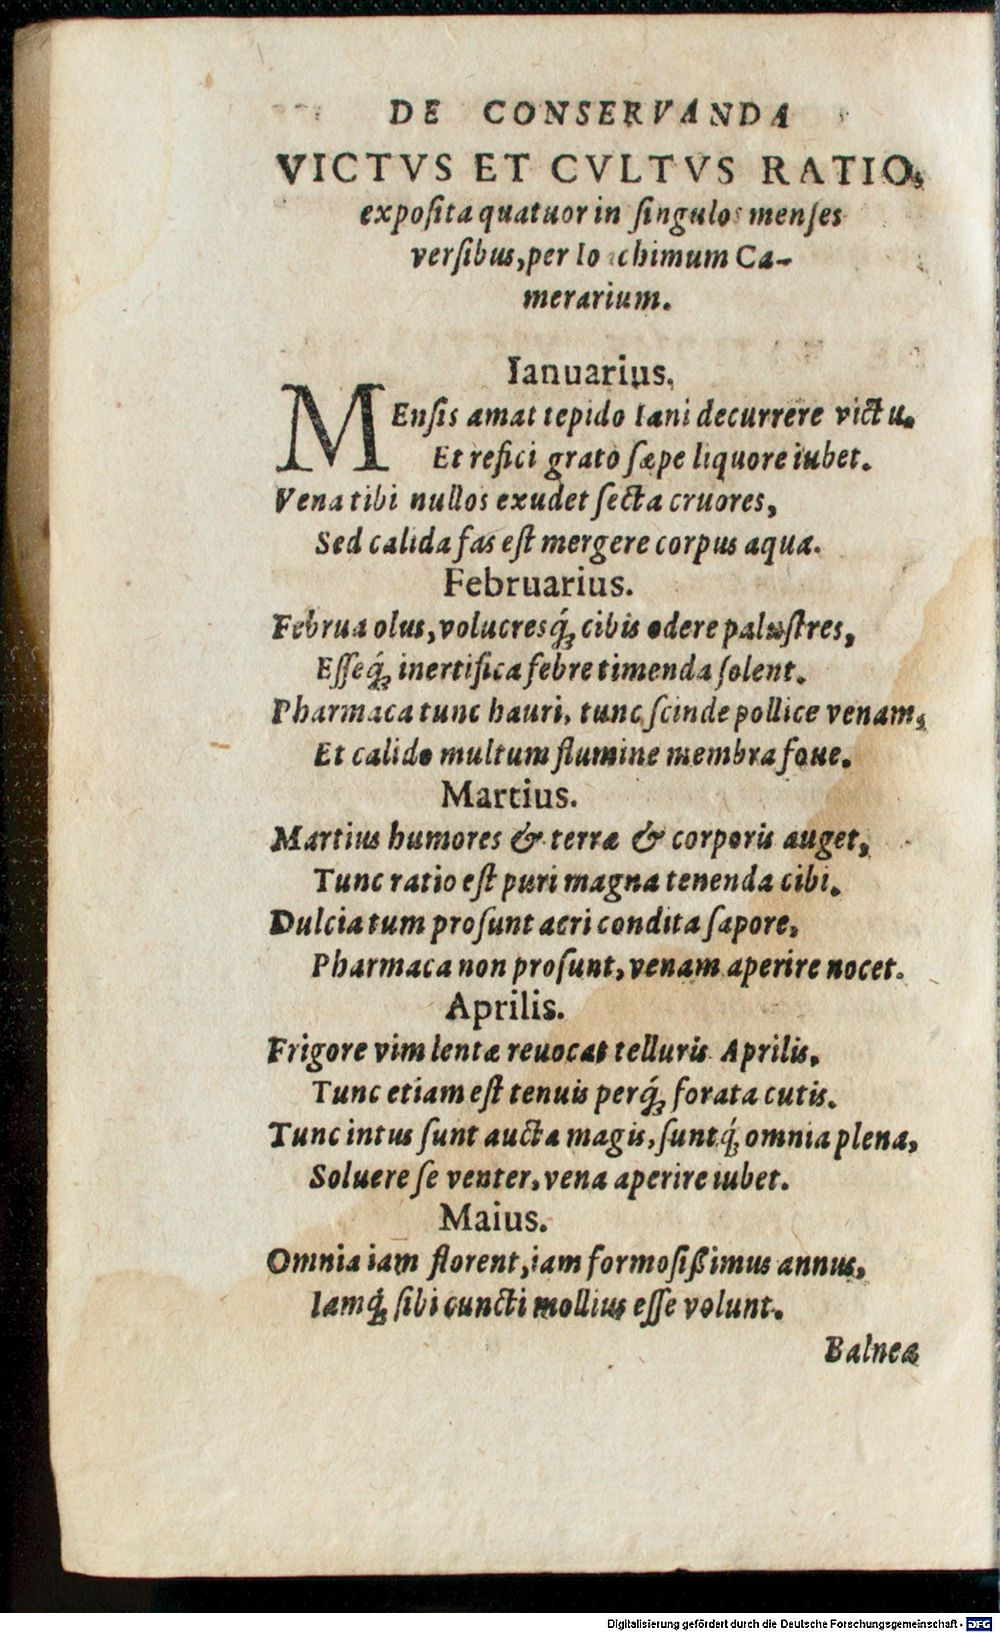 DE CONSERVANDA
VICTVS ET CVLTVS RATIO,
exposita quatuor in singulos menses
versibus, per Io achimum Ca-
merarium.
Ianuarius.
MEnsis amat tepido Iani decurrere victu.
Et refici grato sæpe liquore iubet.
Vena tibi nullos exudet secta cruores,
Sed calida fas est mergere corpus aqua.
Februarius.
Februa olus, volucresq́; cibis edere palustres,
Esseq́; inertifica febre timenda solent.
Pharmaca tunc hauri, tunc scinde pollice venam,
Et calido multum flumine membra foue.
Martius.
Martius humores & terræ & corporis auget,
Tunc ratio est puri magna tenenda cibi.
Dulcia tum prosunt acri condita sapore,
Pharmaca non prosunt, venam aperire nocet.
Aprilis.
Frigore vim lentæ reuocat telluris Aprilis,
Tunc etiam est tenuis perq́; forata cutis.
Tunc intus sunt aucta magis, suntq́; omnia plena,
Soluere se venter, vena aperire iubet.
Maius.
Omnia iam florent, iam formosißimus annus,
Iamq́; sibi cuncti mollius esse volunt.
Balnea
Digitalisierung gefördert durch die Deutsche Forschungsgemeinschaft - DFG